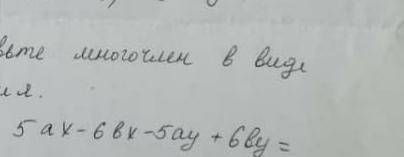 вьте многочлен в виде
ия.
5ax-6вx-5ay+6вy=